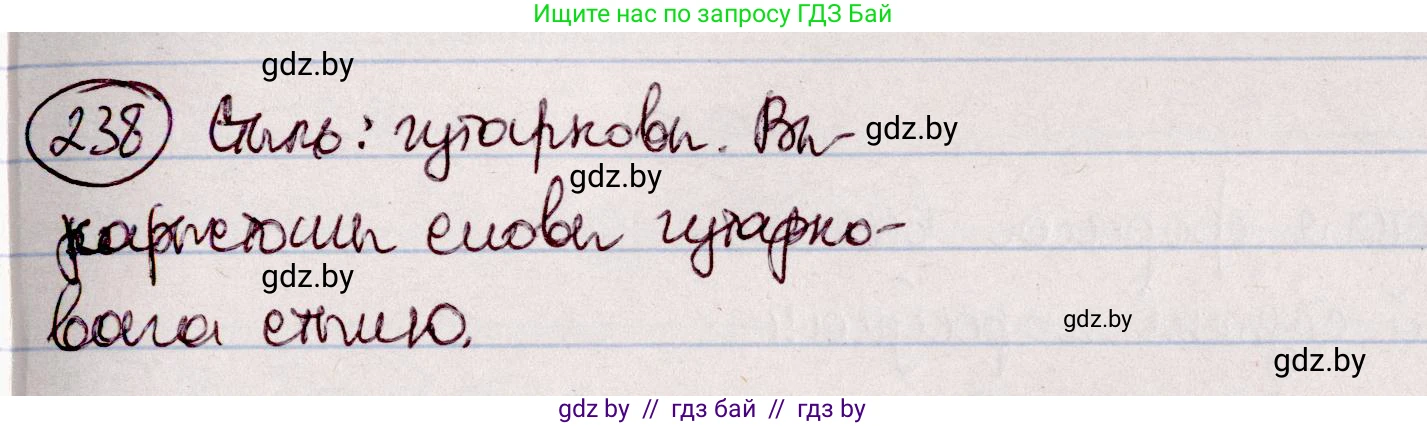 Ищите нас по запросу ГДЗ Бай
gdz.by
238 Стыль: гутарковы. Вы- gdz.by
gdz.by
карыстаны словы гутарко-
gdz.by
вага стылю.
gdz.by
gdz.by
gdz by // гдз бай // гдз by